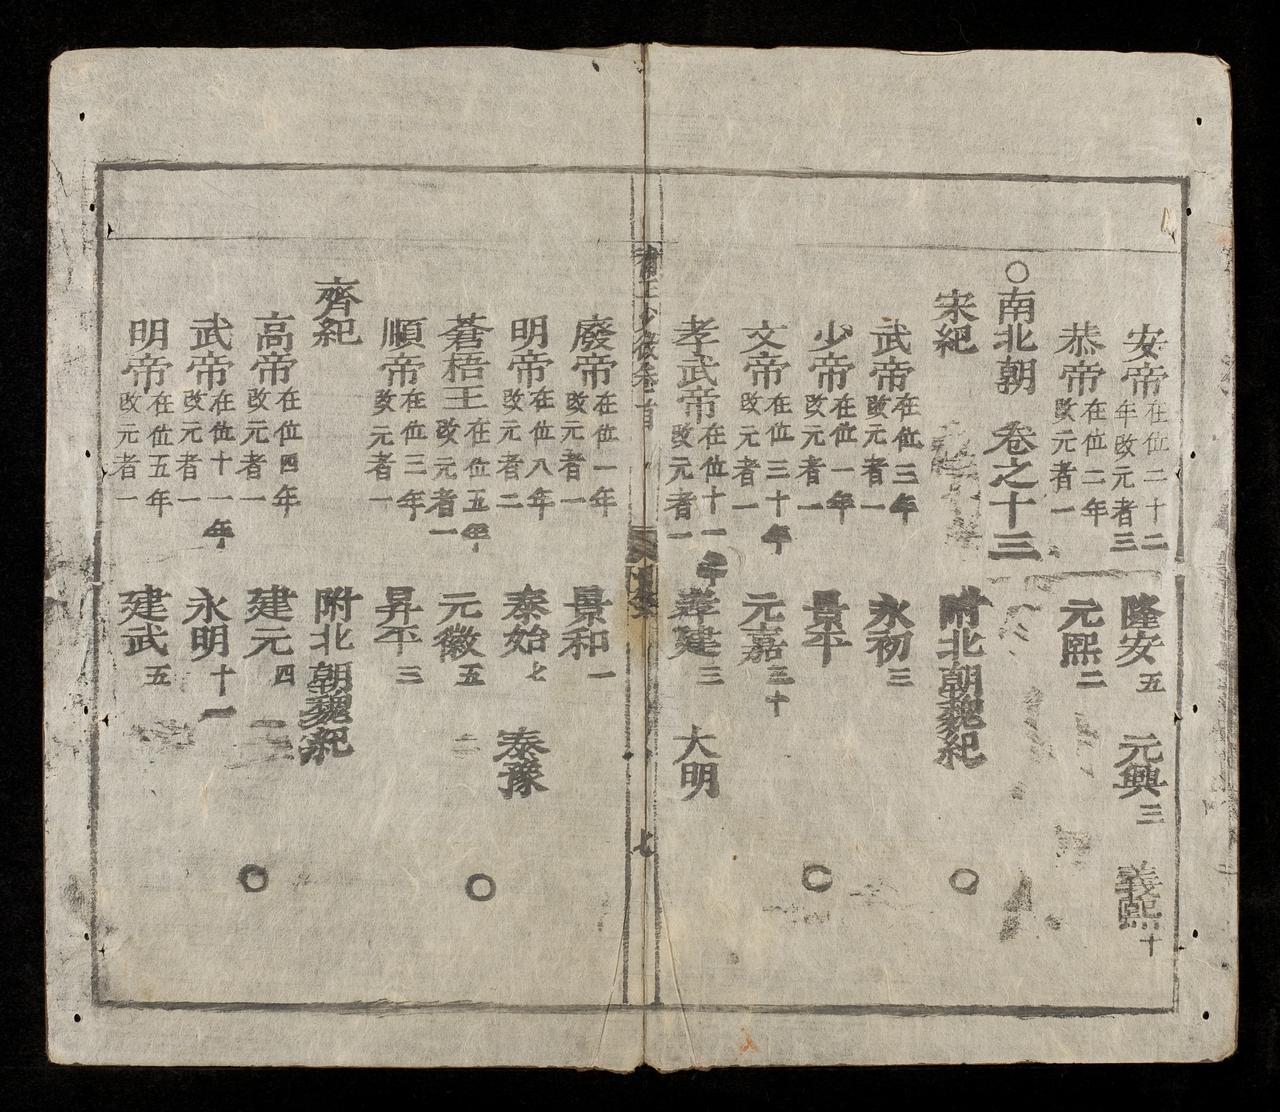 安帝 在位二十二年改元者三 隆安五 元興三 義熙十
恭帝 在位二年改元者一 元熙二
○南北朝 卷之十三
宋紀 附北朝魏紀 ○
武帝 在位三年改元者一 永初三
少帝 在位一年改元者一 景平 ○
文帝 在位三十年改元者一 元嘉三十
孝武帝 在位十一年改元者一 孝建三 大明
卷首 七
廢帝 在位一年改元者一 景和一
明帝 在位八年改元者二 泰始七 泰豫
蒼梧王 在位五年改元者一 元徽五 ○
順帝 在位三年改元者一 昇平三
齊紀 附北朝魏紀
高帝 在位四年改元者一 建元四 ○
武帝 在位十一年改元者一 永明十一
明帝 在位五年改元者一 建武五